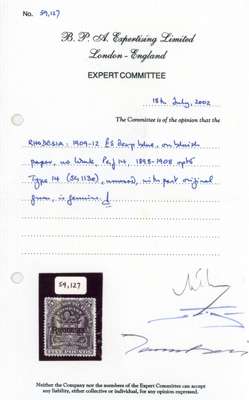 No. 59,127
B. P. A. Expertising Limited
London - England
EXPERT COMMITTEE
18th July, 2002
The Committee is of the opinion that the
RHODESIA: 1909-12 £5 deep blue, on bluish
paper, no wmk, Perf 14, 1898-1908 opts
Type 14 (SG 113e), unused, with part original
gum, is genuine.
59,127
FIVE POUNDS
Neither the Company nor the members of the Expert Committee can accept
any liability, either collective or individual, for any opinion expressed.